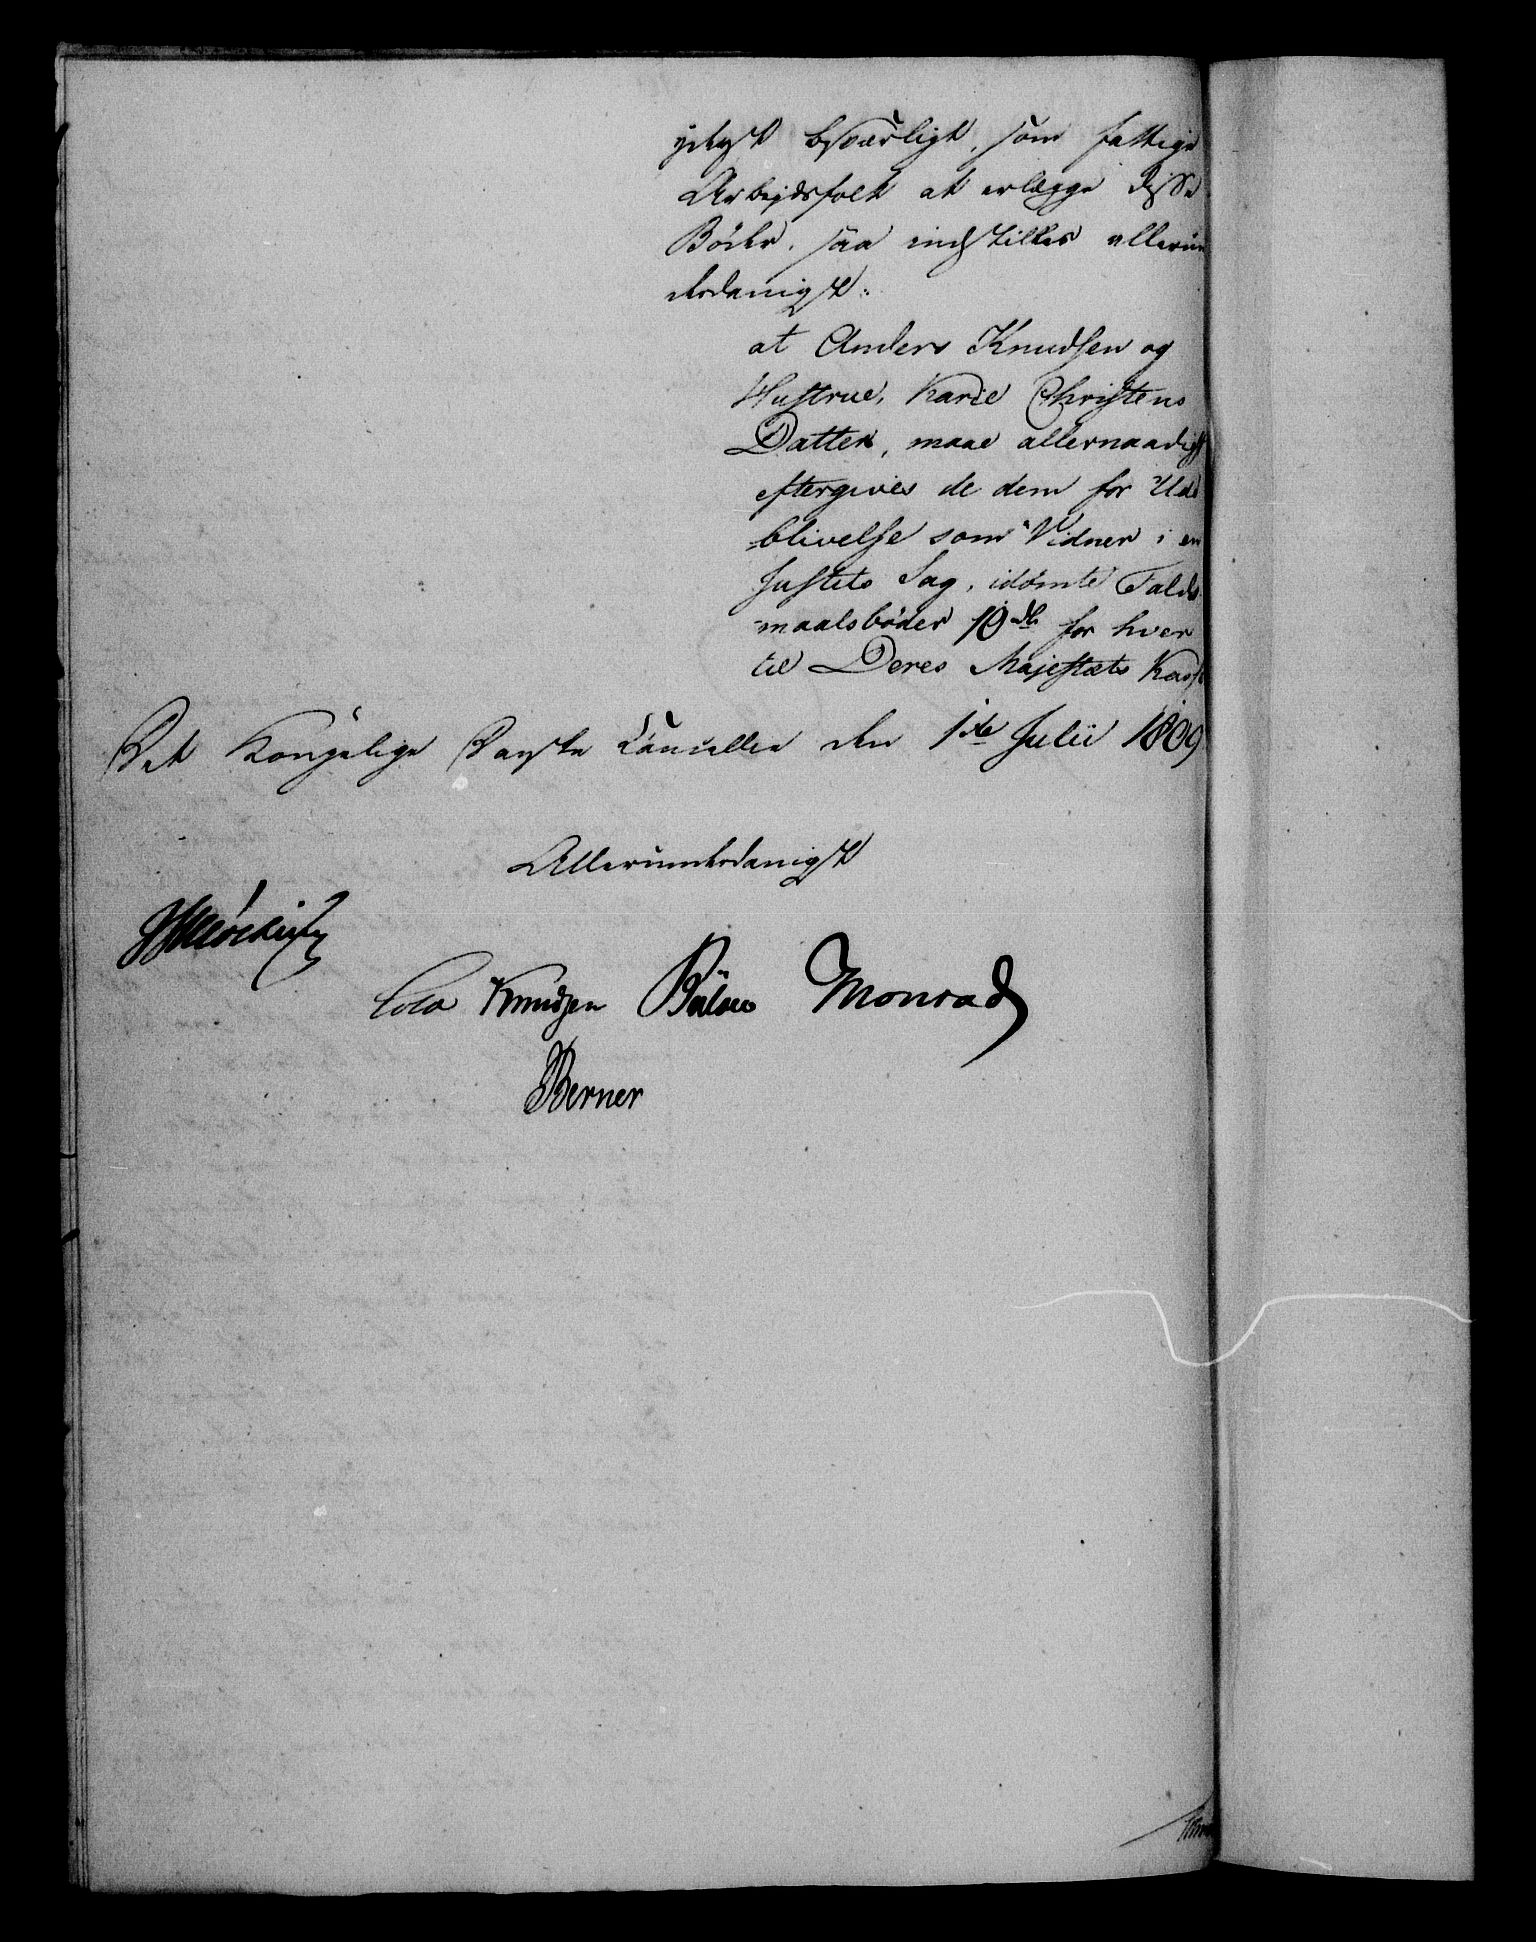 yderst besværligt, som fattige
Arbejdsfolk at erlægge disse
Bøder, saa indstilles allerun
derdanigst:
at Anders Knudsen og
Hustrue, Karie Christens
Datter, maae allernaadigst
eftergives de dem for Ude
blivelse som Vidner i en
Justits Sag, idømte Falds
maalsbøder 10 rdl for hver
til Deres Majestæts Kasse
Det Kongelige Danske Cancellie den 1ste Julii 1809
Allerunderdanigst
Cold Knudsen Bülow Monrad
Berner